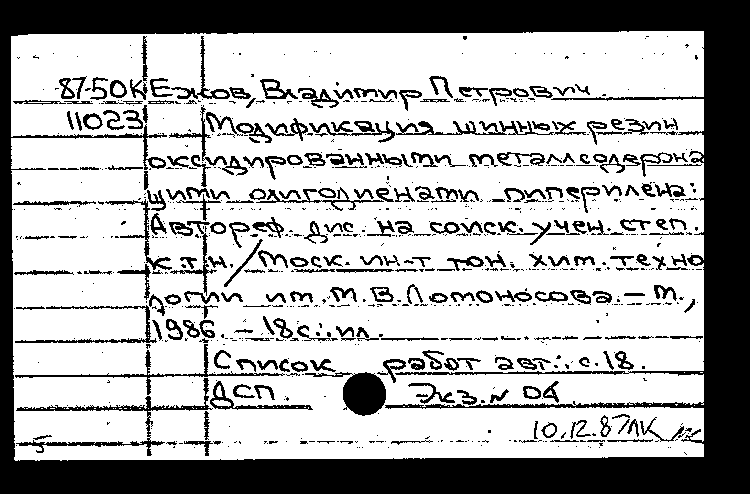 87-50К Ежов, Владимир Петрович.
11023 Модификация шинных резин
оксидированными металлсодержа
щими олигодиенами пиперилена:
Автореф. дис. на соиск. учен. степ.
к.т.н. / Моск. ин-т тон. хим. техно
логии им. М.В. Ломоносова. – М.,
1986. – 18 с.: ил.
Список работ авт.: с. 18.
ДСП. Экз. N 04
10.12.87 ЛК
5